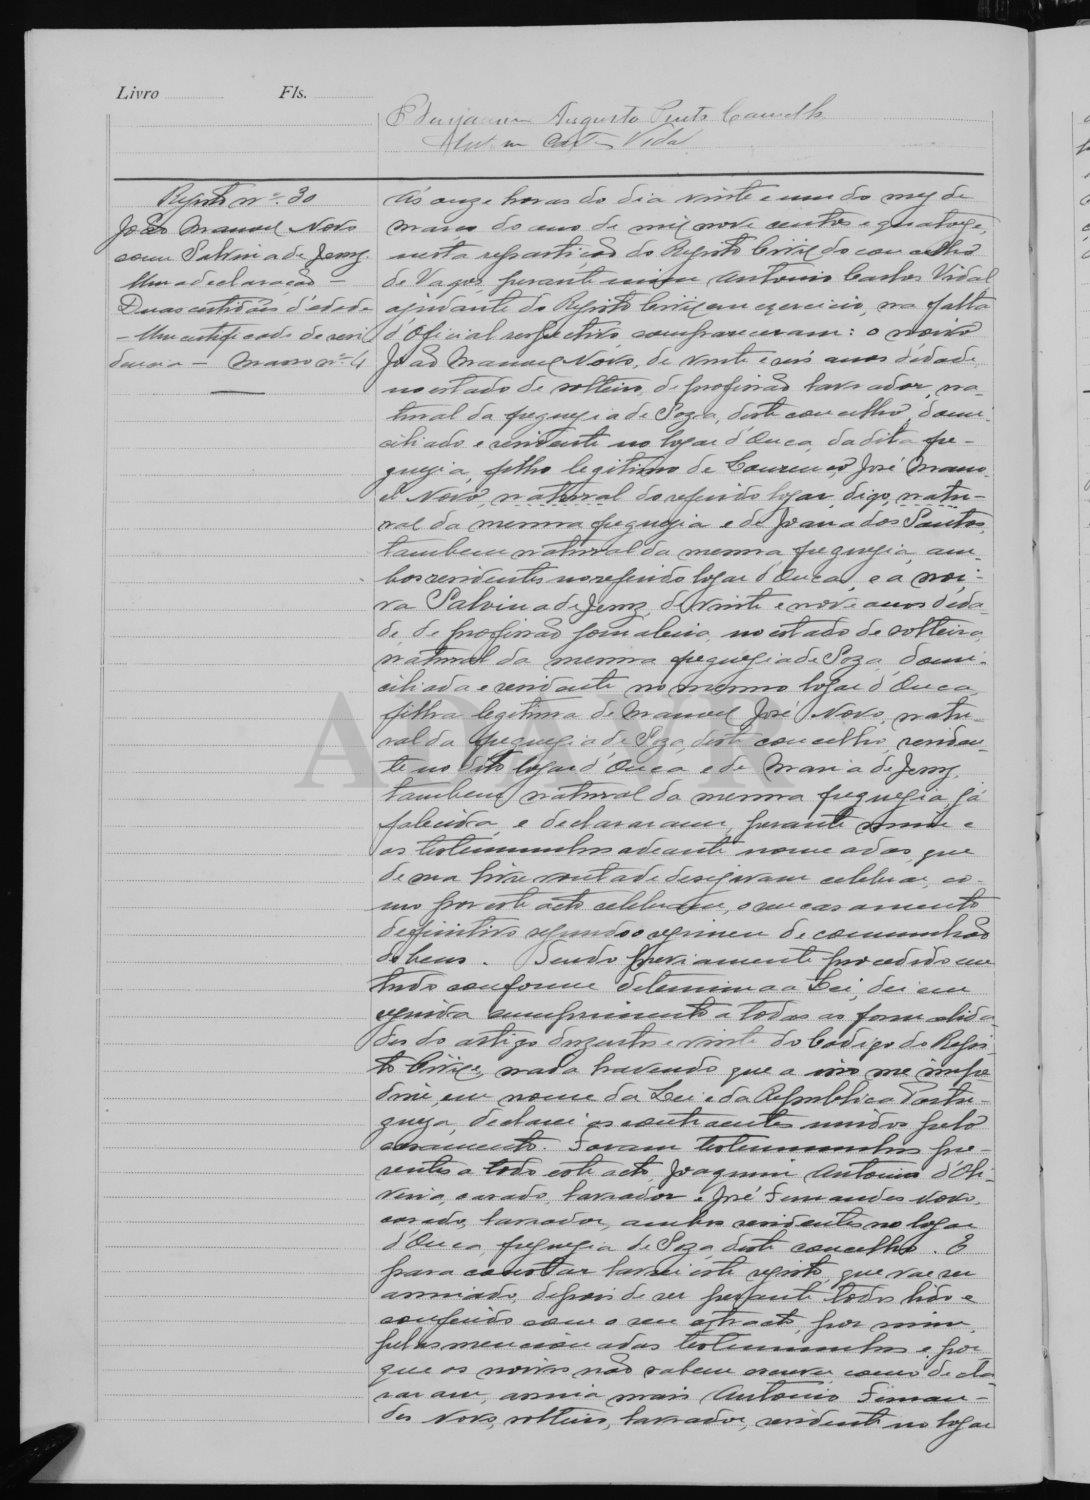 Livro Fls.
Benjamim Augusto Pinto Carvalho
Vidal
Registo nº 30
João Manuel Novo
com Salvina de Jesus.
Uma declaração –
Duas certidões d'edade
– Um certificado de resi
dencia – Masso nº 4
Ás onze horas do dia vinte e um do mez de
março do ano de mil nove centos e quatorze,
nesta repartição do Registo Civil do concelho
de Vagos, perante mim Antonio Carlos Vidal
ajudante do Registo Civil em exercicio, na falta
d'Oficial respectivo, compareceram: o noivo
João Manuel Novo, de vinte e seis anos d'edade
no estado de solteiro, de profissão lavrador, na-
tural da freguezia de Soza, deste concelho, domi-
ciliado e residente no logar d'Ouca, da dita fre-
guezia, filho legitimo de Lourenço José Manu-
el Novo, natural do referido logar, digo, natu-
ral da mesma freguezia e de Joana dos Santos,
tambem natural da mesma freguezia, am-
bos residentes no referido logar d'Ouca, e a noi-
va Salvina de Jesus, de vinte e nove anos d'eda-
de, de profissão jornaleira, no estado de solteira,
natural da mesma freguezia de Soza, domi-
ciliada e residente no mesmo logar d'Ouca,
filha legitima de Manuel José Novo, natu-
ral da freguezia de Soza, deste concelho, residen-
te no dito logar d'Ouca e de Maria de Jesus,
tambem natural da mesma freguezia, já
falecida, e declararam, perante mim e
as testemunhas adeante nomeadas, que
de sua livre vontade desejavam celebrar, co-
mo por este acto celebram, o seu casamento
definitivo segundo o regimen de comunhão
de bens. Sendo previamente procedido em
tudo conforme determina a Lei, dei em
seguida cumprimento a todas as formalida-
des do artigo duzentos e vinte do Codigo do Regis-
to Civil e, nada havendo que a isso me impe-
disse, em nome da Lei e da Republica Portu-
gueza, declarei os contraentes unidos pelo
casamento. Foram testemunhas pre-
sentes a todo este acto, Joaquim Antonio d'Oli-
veira, casado, lavrador e José Fernandes Novo,
casado, lavrador, ambos residentes no logar
d'Ouca, freguezia de Soza, deste concelho. E
para constar lavrei este registo, que vae ser
assinado, depois de ser perante todos lido e
conferido com o seu extracto, por mim,
pelas mencionadas testemunhas e por
que os noivos não sabem escrever como decla
raram, assina mais Antonio Fernan-
des Novo, solteiro, lavrador, residente no logar
ADAVR